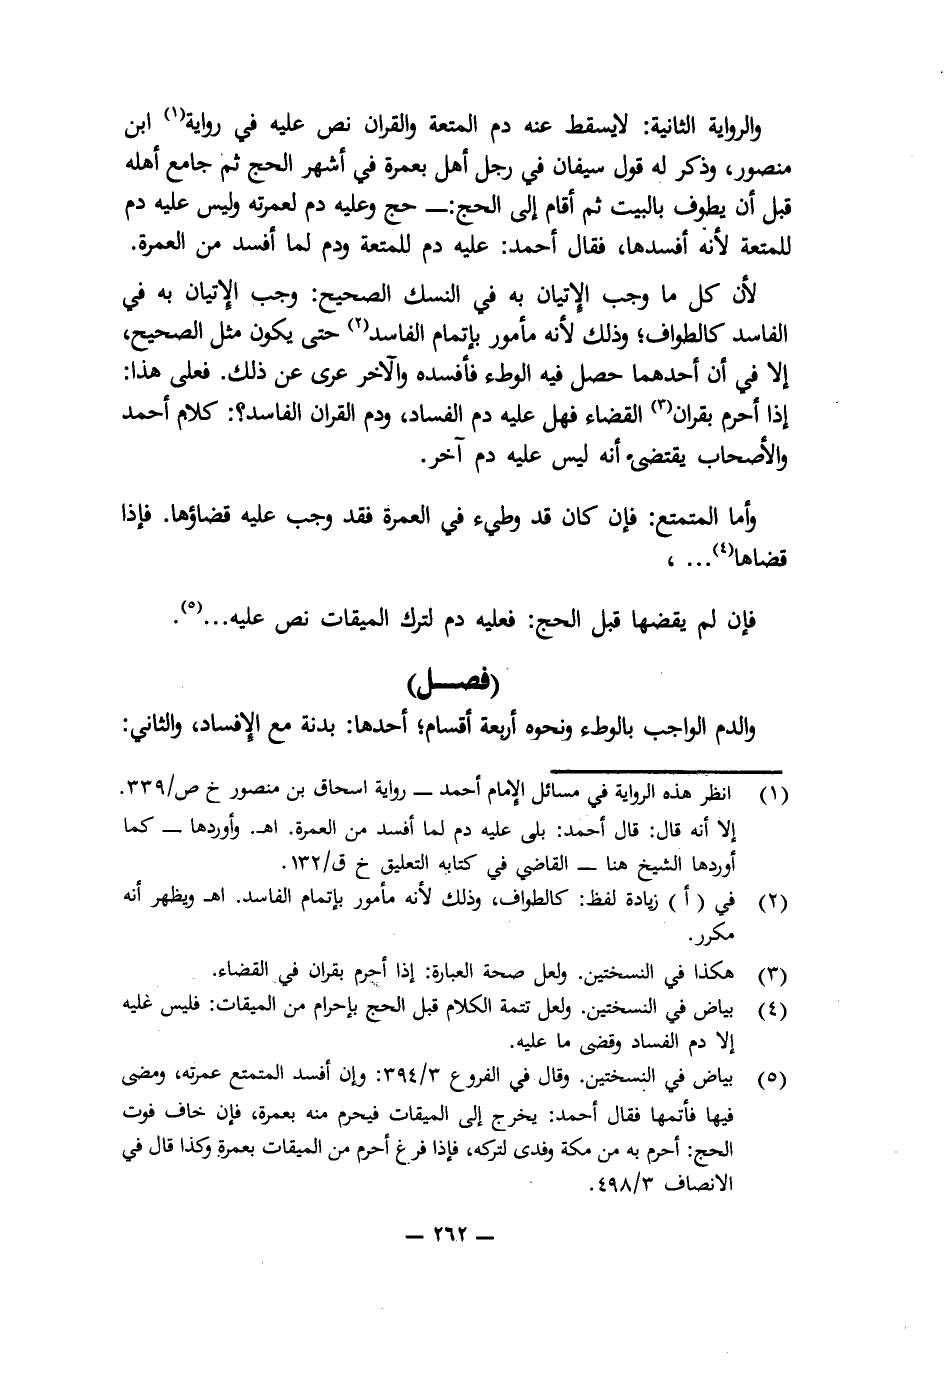 والرواية الثانية: لايسقط عنه دم المتعة والقران نص عليه في رواية(١) ابن
منصور، وذكر له قول سيفان في رجل أهل بعمرة في أشهر الحج ثم جامع أهله
قبل أن يطوف بالبيت ثم أقام إلى الحج:ــ حج وعليه دم لعمرته وليس عليه دم
للمتعة لأنه أفسدها، فقال أحمد: عليه دم للمتعة ودم لما أفسد من العمرة.
لأن كل ما وجب الإتيان به في النسك الصحيح: وجب الإتيان به في
الفاسد كالطواف؛ وذلك لأنه مأمور بإتمام الفاسد(٢) حتى يكون مثل الصحيح،
إلا في أن أحدهما حصل فيه الوطء فأفسده والآخر عرى عن ذلك. فعلى هذا:
إذا أحرم بقران(٣) القضاء فهل عليه دم الفساد، ودم القران الفاسد؟: كلام أحمد
والأصحاب يقتضيء أنه ليس عليه دم آخر.
وأما المتمتع: فإن كان قد وطيء في العمرة فقد وجب عليه قضاؤها. فإذا
قضاها(٤)... ،
فإن لم يقضها قبل الحج: فعليه دم لترك الميقات نص عليه...(٥).
(فصــل)
والدم الواجب بالوطء ونحوه أربعة أقسام؛ أحدها: بدنة مع الإفساد، والثاني:
(١) انظر هذه الرواية في مسائل الإمام أحمد ــ رواية اسحاق بن منصور خ ص/٣٣٩.
إلا أنه قال: قال أحمد: بلى عليه دم لما أفسد من العمرة. اهـ. وأوردها ــ كما
أوردها الشيخ هنا ــ القاضي في كتابه التعليق خ ق/١٣٢.
(٢) في ( أ ) زيادة لفظ: كالطواف، وذلك لأنه مأمور بإتمام الفاسد. اهـ ويظهر أنه
مكرر.
(٣) هكذا في النسختين. ولعل صحة العبارة: إذا أحرم بقران في القضاء.
(٤) بياض في النسختين. ولعل تتمة الكلام قبل الحج بإحرام من الميقات: فليس غليه
إلا دم الفساد وقضى ما عليه.
(٥) بياض في النسختين. وقال في الفروع ٣٩٤/٣: وإن أفسد المتمتع عمرته، ومضى
فيها فأتمها فقال أحمد: يخرج إلى الميقات فيحرم منه بعمرة، فإن خاف فوت
الحج: أحرم به من مكة وفدى لتركه، فإذا فرغ أحرم من الميقات بعمرة وكذا قال في
الانصاف ٤٩٨/٣.
ــ ٢٦٢ ــ